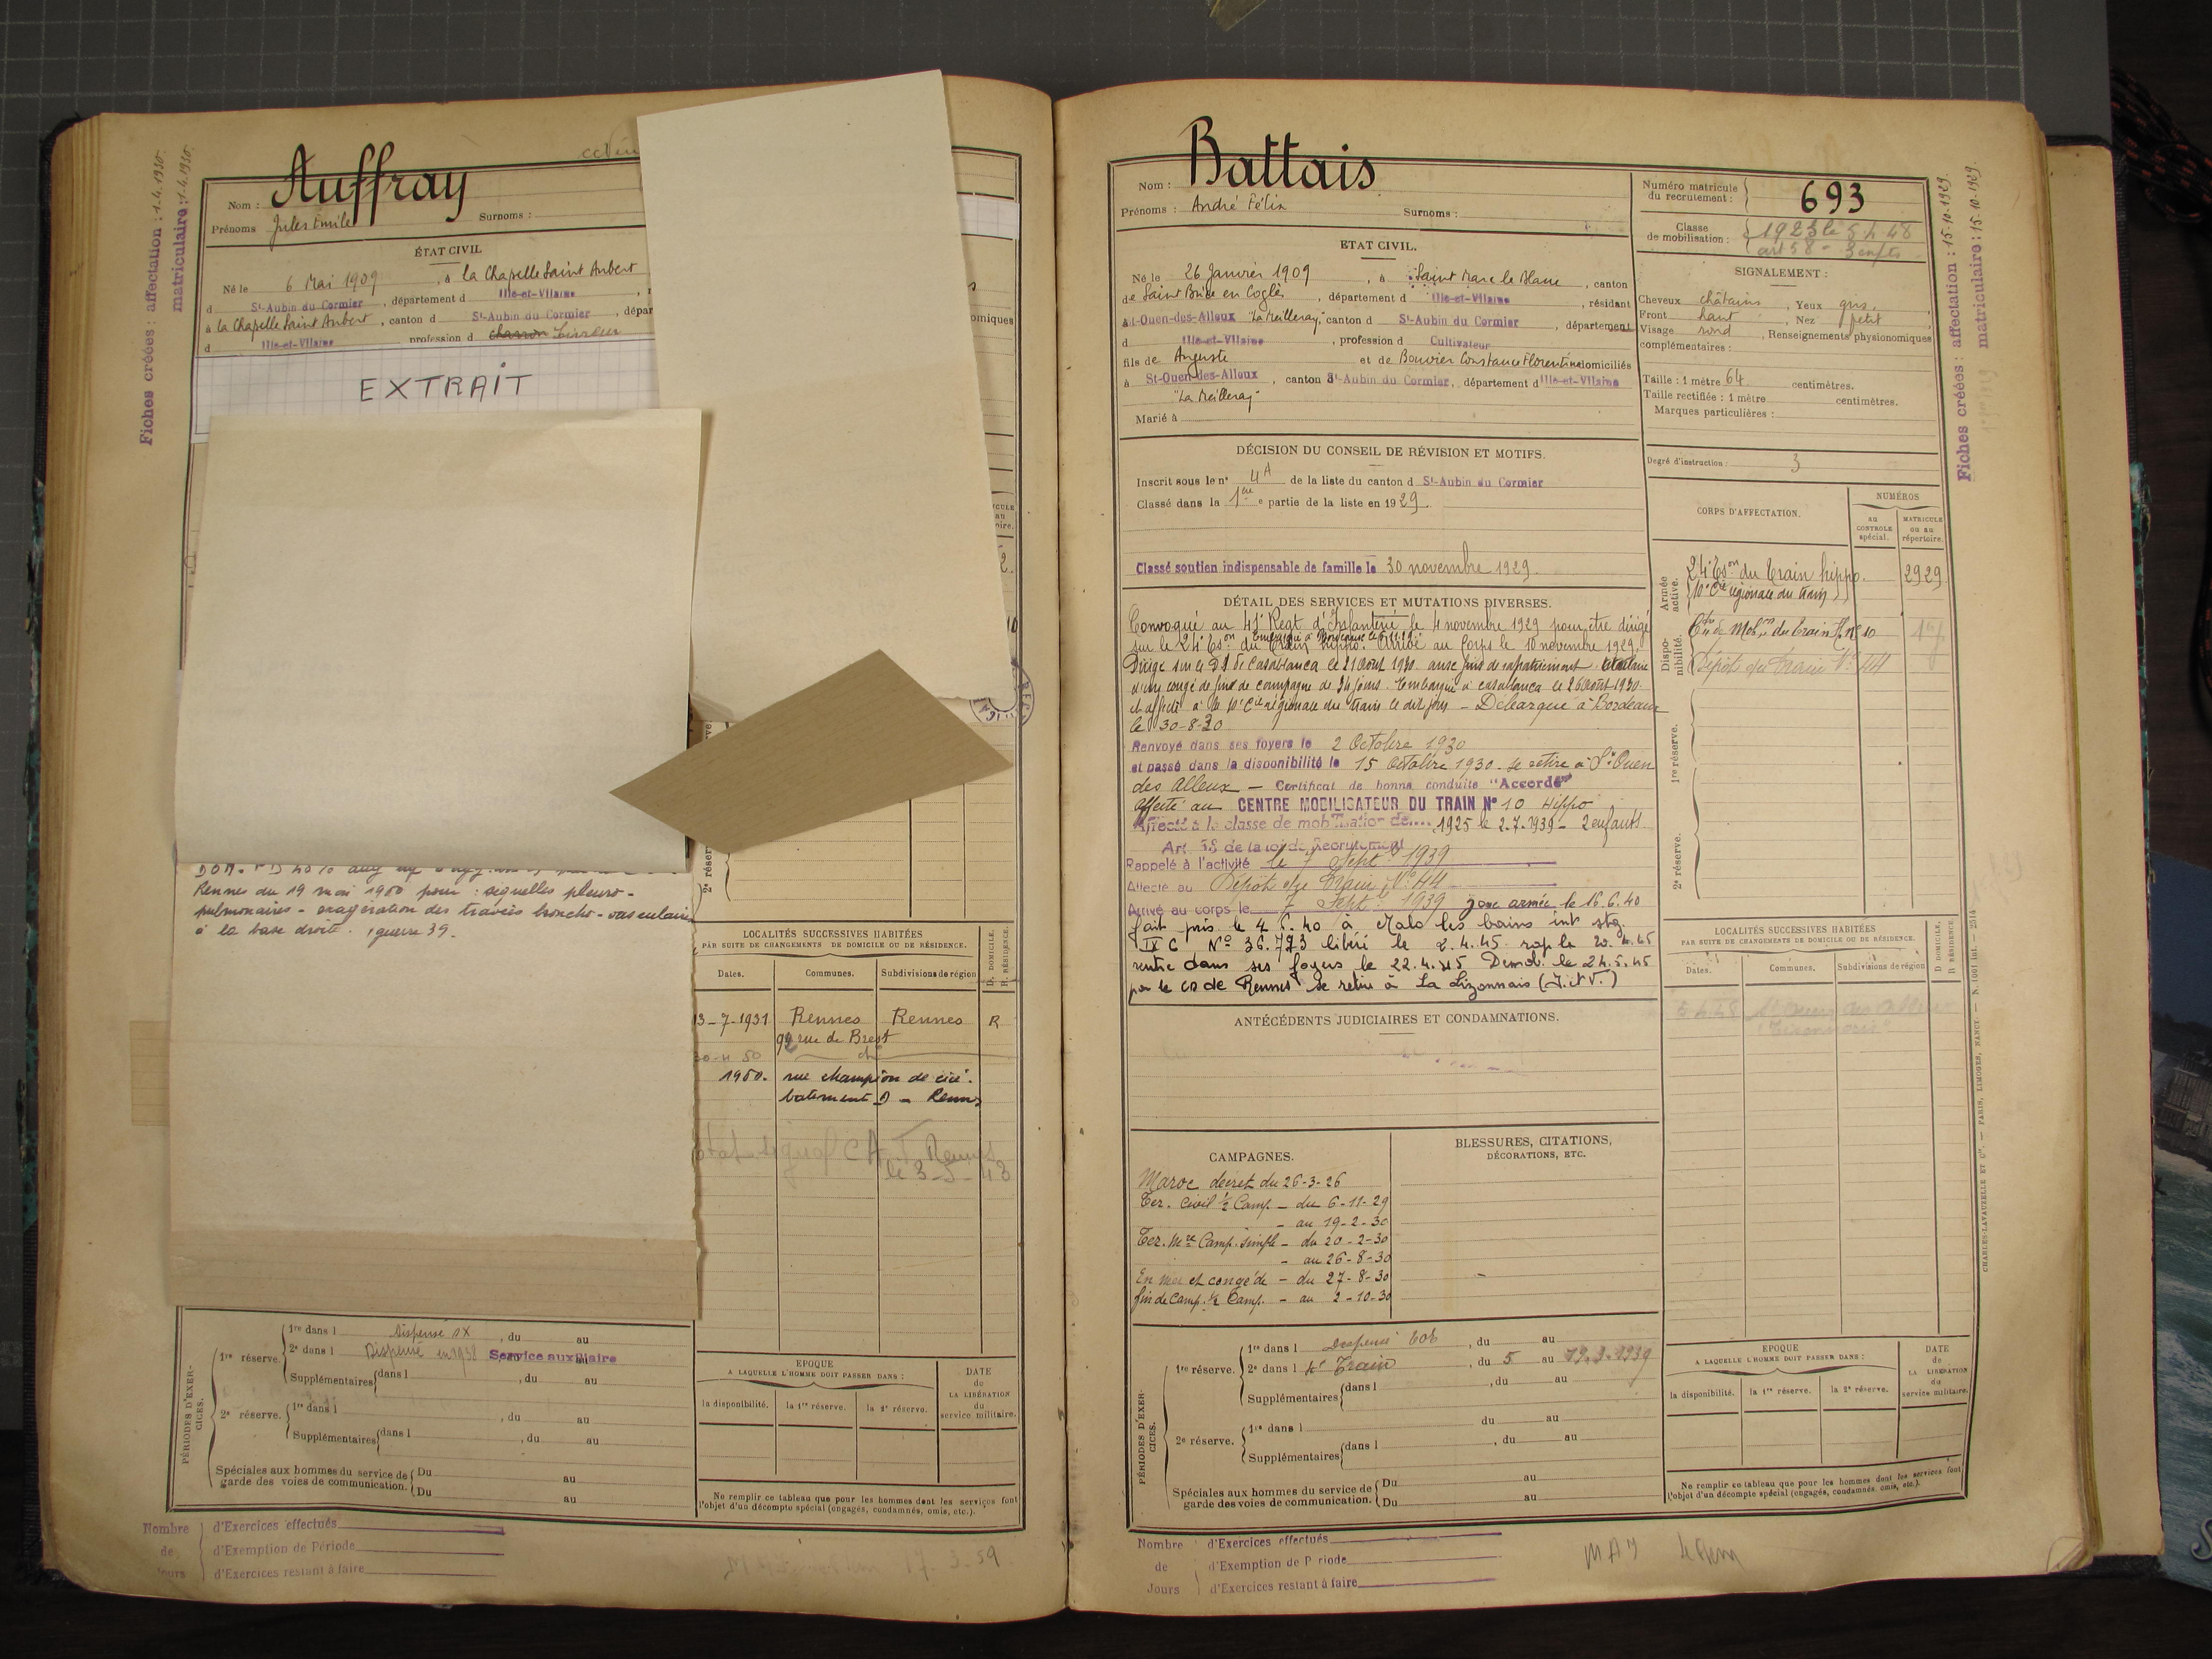 Auffray
Nom :
Prénoms Jules Emile Surnoms :
ÉTAT CIVIL
Né le 6 Mai 1909, à la Chapelle Saint Aubert
d St-Aubin du Cormier, département d Ille-et-Vilaine
à la Chapelle Saint Aubert, canton d St-Aubin du Cormier, dépar
d Ille-et-Vilaine profession d charron
EXTRAIT
Fiches créées : affectation : 1-4-1930.
matriculaire : 1-4-1930.
Rennes du 19 mai 1950 pour : séquelles pleuro-
pulmonaires - exagération des travées broncho-vasculaires
à la base droite. guerre 39.
LOCALITÉS SUCCESSIVES HABITÉES
PAR SUITE DE CHANGEMENTS DE DOMICILE OU DE RÉSIDENCE.
D. DOMICILE.
R. RÉSIDENCE.
Dates. Communes. Subdivisions de région
13-7-1931 Rennes Rennes R
92 rue de Brest
1950. rue champion de cicé.
batiment D - Rennes
PÉRIODES D'EXERCICES.
1re réserve. 1re dans l Dispensé, du au
2e dans l Dispensé en 1938 Service auxiliaire
Supplémentaires dans l, du au
2e réserve. 1re dans l, du au
Supplémentaires dans l, du au
Spéciales aux hommes du service de garde des voies de communication. Du au
Du au
EPOQUE
A LAQUELLE L'HOMME DOIT PASSER DANS :
la disponibilité. la 1re réserve. la 2e réserve.
DATE
de
LA LIBÉRATION
du
service militaire.
Ne remplir ce tableau que pour les hommes dont les services font
l'objet d'un décompte spécial (engagés, condamnés, omis, etc.).
Nombre de Jours
d'Exercices effectués
d'Exemption de Période
d'Exercices restant à faire
Battais
Nom :
Prénoms : André Félix Surnoms :
ETAT CIVIL.
Né le 26 Janvier 1909, à Saint Marc le Blanc, canton
de Saint Brice en Coglès, département d Ille-et-Vilaine, résidant
à St-Ouen-des-Alleux "La Meilleray" canton d St-Aubin du Cormier, département
d Ille-et-Vilaine, profession d Cultivateur
fils de Auguste et de Bouvier Constance Florentine domiciliés
à St-Ouen-des-Alleux, canton St-Aubin du Cormier, département d Ille-et-Vilaine
"La Meilleray"
Marié à
DÉCISION DU CONSEIL DE RÉVISION ET MOTIFS.
Inscrit sous le n° 4A de la liste du canton d St-Aubin du Cormier
Classé dans la 1ère e partie de la liste en 1929.
Classé soutien indispensable de famille le 30 novembre 1929.
DÉTAIL DES SERVICES ET MUTATIONS DIVERSES.
Convoqué au 41e Regt d'Infanterie le 4 novembre 1929 pour être dirigé
Embarqué à Bordeaux le 6.11.29.
sur le 24e Eson du Train hippo. Arrivé au Corps le 10 novembre 1929.
Dirigé sur le D.I. de Casablanca le 21 Août 1930 aux fins de rapatriement titulaire
d'un congé de fin de campagne de 34 jours. Embarqué à Casablanca le 26 Août 1930.
et affecté à la 10e Cie régionale du train le dit jour - Débarqué à Bordeaux
le 30-8-30
Renvoyé dans ses foyers le 2 Octobre 1930
et passé dans la disponibilité le 15 Octobre 1930. se retire à St Ouen
des Alleux - Certificat de bonne conduite "Accordé"
Affecté au CENTRE MOBILISATEUR DU TRAIN N° 10 Hippo
Affecté à la classe de mobilisation de.... 1925 le 2.7.1939 - 2 enfants.
Art. 58 de la loi de Recrutement
Rappelé à l'activité le 7 Sept. 1939
Affecté au Dépôt du Train N° 44
Arrivé au corps le 7 Sept. 1939 zone armée le 16.6.40
fait pris. le 4.6.40 à Malo les bains int stg.
IX C N° 36.773 libéré le 2.4.45 rap le 20.4.45
rentre dans ses foyers le 22.4.45 Démob. le 24.5.45
par le CD de Rennes se retire à La Lizonnais (I. et V.)
ANTÉCÉDENTS JUDICIAIRES ET CONDAMNATIONS.
CAMPAGNES.
Maroc décret du 26-3-26
Ter. civil ½ Camp. - du 6-11-29
- au 19-2-30
Ter. Mre Camp. simple - du 20-2-30
- au 26-8-30
En mer et congé de - du 27-8-30
fin de camp. ½ Camp. - au 2-10-30
BLESSURES, CITATIONS,
DÉCORATIONS, ETC.
PÉRIODES D'EXERCICES.
1re réserve. 1re dans l Dispensé, du au
2e dans l Train, du 5 au 19.3.1939
Supplémentaires dans l, du au
2e réserve. 1re dans l du au
Supplémentaires dans l, du au
Spéciales aux hommes du service de garde des voies de communication. Du au
Du au
Nombre de Jours
d'Exercices effectués
d'Exemption de P riode
d'Exercices restant à faire
Numéro matricule du recrutement : 693
Classe de mobilisation : 1923 le 5 4 48
art 58 - 3 enfts
SIGNALEMENT :
Cheveux châtains, Yeux gris.
Front haut, Nez petit
Visage rond, Renseignements physionomiques
complémentaires :
Taille : 1 mètre 64 centimètres.
Taille rectifiée : 1 mètre centimètres.
Marques particulières :
Degré d'instruction : 3
CORPS D'AFFECTATION.
NUMÉROS
AU CONTROLE spécial.
MATRICULE OU AU répertoire.
Armée active.
24e Eson du Train hippo. 2929
10e Cie régionale du train
Disponibilité.
Ctre de Mobon du train H. n° 10
Dépôt du Train N° 44
1re réserve.
2e réserve.
LOCALITÉS SUCCESSIVES HABITÉES
PAR SUITE DE CHANGEMENTS DE DOMICILE OU DE RÉSIDENCE.
D DOMICILE.
R RÉSIDENCE
Dates. Communes. Subdivisions de région
5.4.48 St Ouen des Alleux
EPOQUE
A LAQUELLE L'HOMME DOIT PASSER DANS :
la disponibilité. la 1re réserve. la 2e réserve.
DATE
de
LA LIBÉRATION
du
service militaire.
Ne remplir ce tableau que pour les hommes dont les services font
l'objet d'un décompte spécial (engagés, condamnés, omis, etc.).
Fiches créées : affectation : 15-10-1929.
matriculaire : 15-10-1929.
CHARLES-LAVAUZELLE ET Cie. — PARIS, LIMOGES, NANCY.